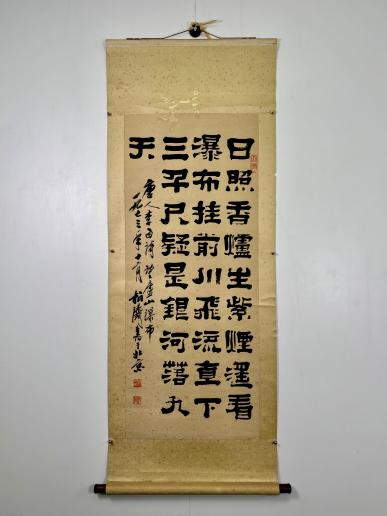 日照香爐生紫煙遥看
瀑布挂前川飛流直下
三千尺疑是銀河落九
天
唐人李白詩望廬山瀑布
一九七三年十一月書于北京